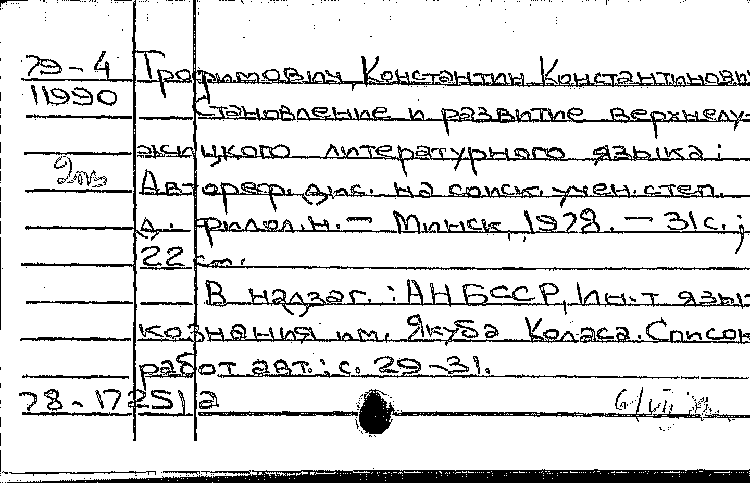 79-4 Трофимович, Константин Константинович
11990 Становление и развитие верхнелу-
жицкого литературного языка:
Автореф. дис. на соиск. учен. степ.
д. филол. н. - Минск, 1978. - 31 с.;
22 см.
В надзаг.: АН БССР, Ин-т язы-
кознания им. Якуба Коласа. Список
работ авт.: с. 29-31.
78-17251а